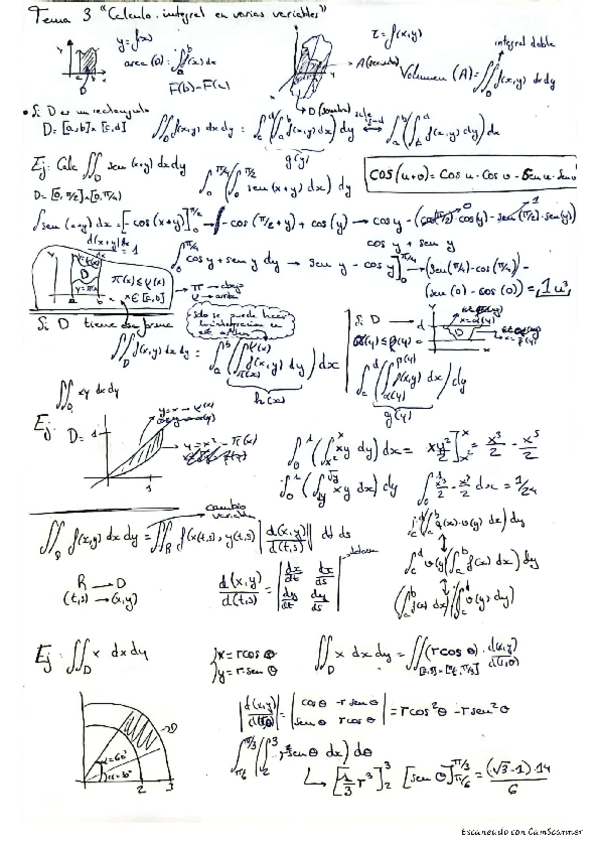 Tema 3 "Calculo integral en varias variables"
y=f(x)
area (D) = ∫_a^b f(x) dx
F(b)-F(a)
z = f(x,y)
A (sombra)
D (sombra)
integral doble
Volumen (A) = ∬_D f(x,y) dx dy
• Si D es un rectangulo
D = [a,b] x [c,d]
∬_D f(x,y) dx dy = ∫_c^d (∫_a^b f(x,y) dx) dy ↔ ∫_a^b (∫_c^d f(x,y) dy) dx
g(y)
Ej: Calc ∬_D sen (x+y) dx dy
D = [0, π/2] x [0, π/4]
∫_0^{π/4} (∫_0^{π/2} sen (x+y) dx) dy
cos(u+v) = cos u · cos v - sen u · sen v
∫ sen (x+y) dx = [-cos (x+y)]_0^{π/2} → -cos (π/2+y) + cos (y) → cos y - (cos(π/2) · cos(y) - sen(π/2) · sen(y))
0
1
d(x+y)/dx = 1
cos y + sen y
∫_0^{π/4} cos y + sen y dy → sen y - cos y]_0^{π/4} → (sen(π/4) - cos(π/4)) -
(sen (0) - cos (0)) = 1 u³
D
π(x) ≤ φ(x)
x ∈ [a,b]
π → abajo
φ → arriba
Si D tiene esa forma
solo se puede hacer
∬_D f(x,y) dx dy = ∫_a^b (∫_{π(x)}^{φ(x)} f(x,y) dy) dx
h(x)
Si D →
α(y) ≤ β(y)
∫_c^d (∫_{α(y)}^{β(y)} f(x,y) dx) dy
g(y)
∬_D xy dx dy
Ej: D =
1
y = x → φ(x)
y = x² - π(x)
1
∫_0^1 (∫_{x²}^x xy dy) dx = xy²/2]_{x²}^x = x³/2 - x⁵/2
∫_0^1 (∫_y^{√y} xy dx) dy
∫_0^1 x³/2 - x⁵/2 dx = 1/24
cambio
variable
∬_D f(x,y) dx dy = ∬_R f(x(t,s), y(t,s)) |d(x,y)/d(t,s)| dt ds
R → D
(t,s) → (x,y)
d(x,y)/d(t,s) = | dx/dt dx/ds |
| dy/dt dy/ds |
∫_c^d (∫_a^b f(x) · v(y) dx) dy
∫_c^d v(y) (∫_a^b f(x) dx) dy
(∫_a^b f(x) dx) (∫_c^d v(y) dy)
Ej: ∬_D x dx dy
x = r cos θ
y = r sen θ
∬_D x dx dy = ∬ (r cos θ) · d(x,y)/d(r,θ)
[2,3] x [π/6, π/3]
|d(x,y)/d(r,θ)| = | cos θ -r sen θ |
| sen θ r cos θ |
= r cos²θ - r sen²θ
D
α = 60°
α = 30°
2
3
∫_{π/6}^{π/3} (∫_2^3 r² sen θ dx) dθ
↳ [1/3 r³]_2^3 [sen θ]_{π/6}^{π/3} = (√3-1) · 14 / 6
Escaneado con CamScanner